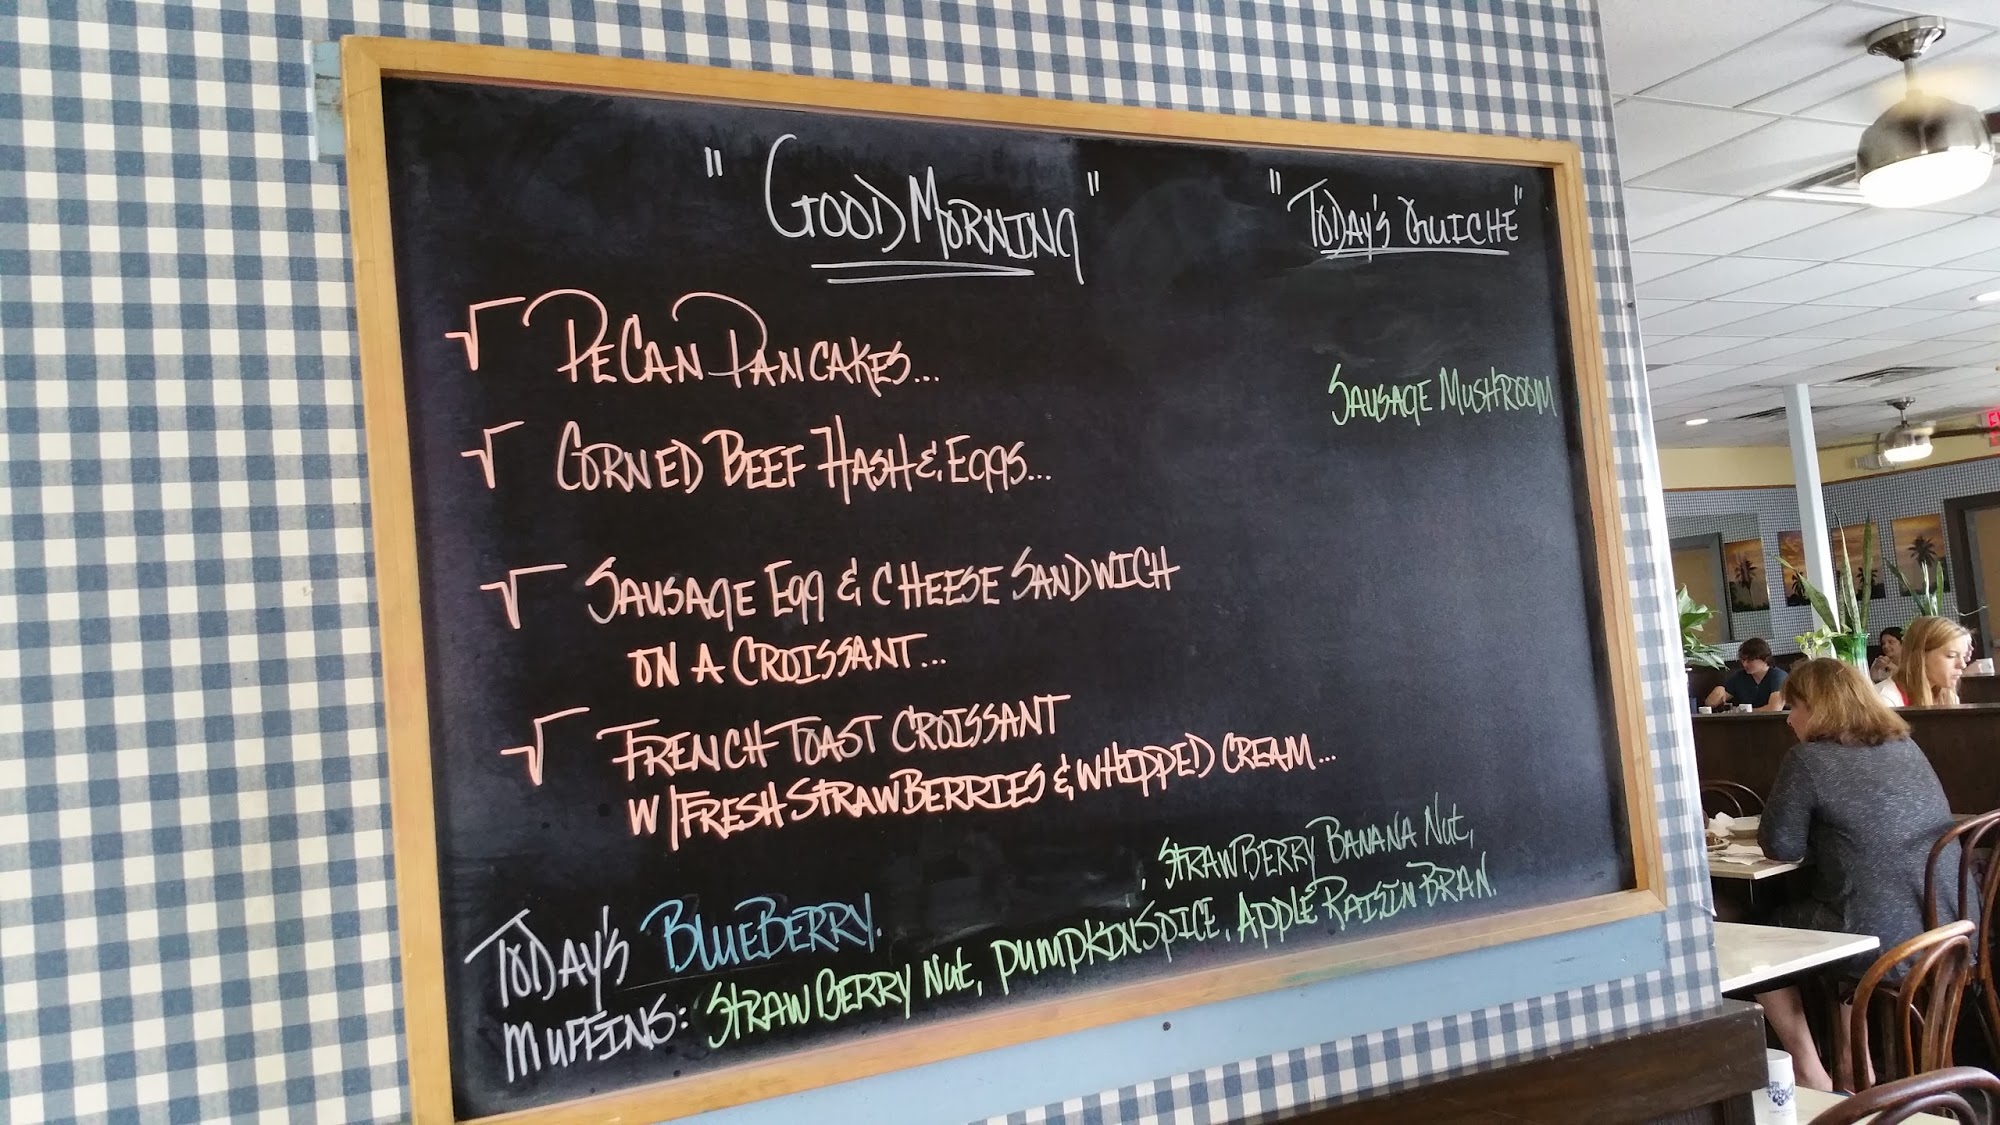 "Good Morning"
"Today's Quiche"
√ Pecan Pancakes...
Sausage Mushroom
√ Corned Beef Hash & Eggs...
√ Sausage Egg & Cheese Sandwich
on a Croissant...
√ French Toast Croissant
w/ Fresh Strawberries & Whipped Cream...
Today's Blueberry.
, Strawberry Banana Nut,
Muffins: Strawberry Nut, Pumpkin Spice, Apple Raisin Bran.